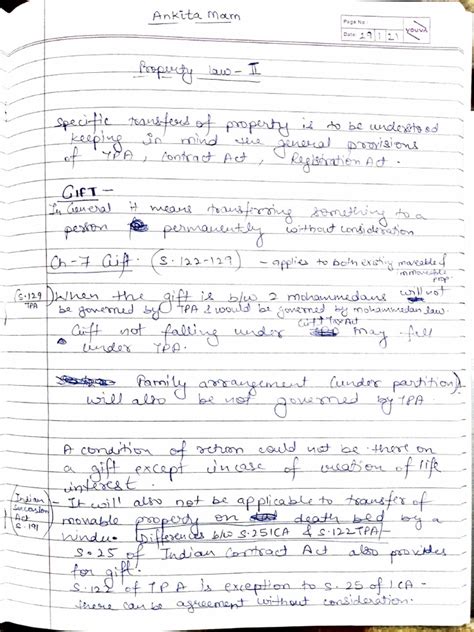 Ankita Mam
Page No
Date 29 1 21
YOUVA
Property law - II
Specific transfers of property is to be understood
keeping in mind the general provisions
of TPA, Contract Act, Registration Act.
GIFT -
In General it means transferring something to a
person permanently without consideration
Ch-7 Gift. (S.122-129) - applies to both existing moveable &
immoveable prop.
S.129
TPA
When the gift is b/w 2 mohammedans will not
be governed by TPA & would be governed by mohammedan law.
Gift Tax Act
Gift not falling under may fall
under TPA.
Family arrangement (under partition)
will also be not governed by TPA.
A condition of return could not be there on
a gift except in case of creation of life
interest.
Indian
Succession
Act
S.191
- It will also not be applicable to transfer of
movable property on death bed by a
Hindu. Differences b/w S.25 ICA & S.122 TPA -
S.25 of Indian Contract Act also provides
for gift.
S.122 of TPA is exception to S.25 of ICA -
there can be agreement without consideration.